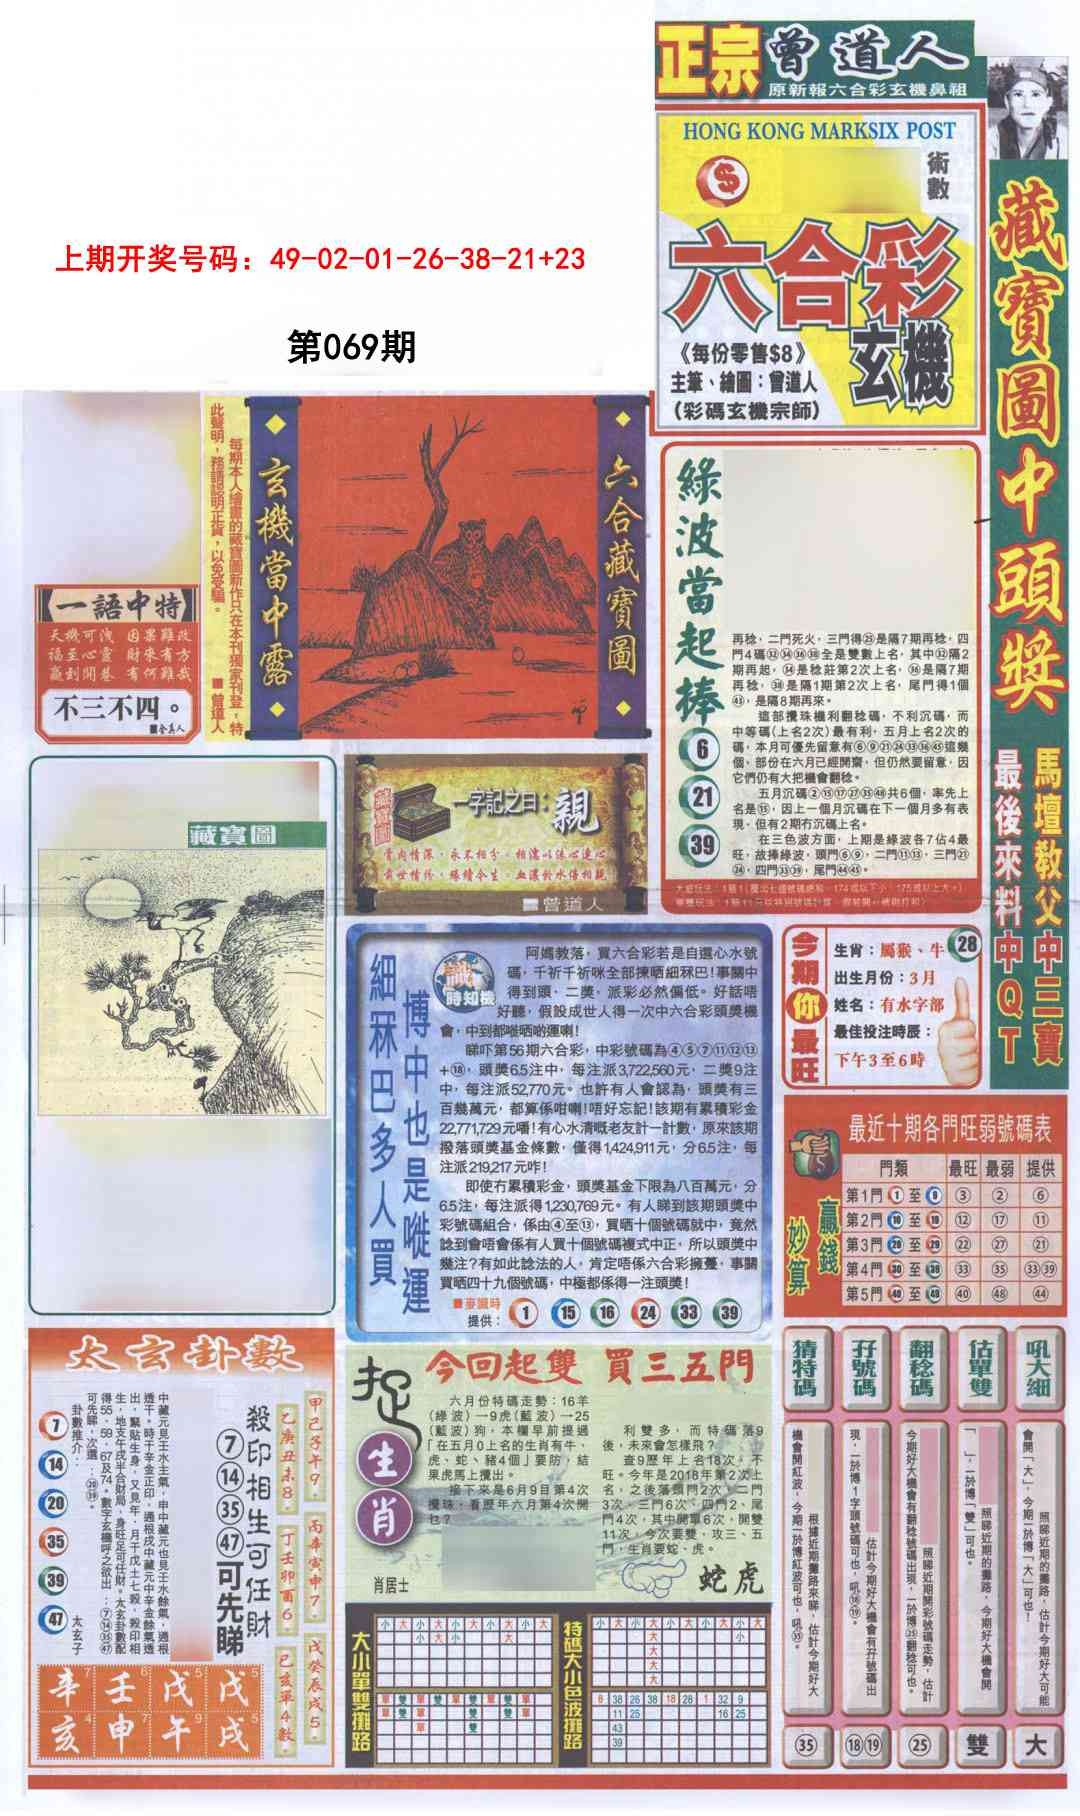 正宗曾道人
原新報六合彩玄機鼻祖
HONG KONG MARKSIX POST
術數
六合彩
玄機
《每份零售$8》
主筆、繪圖：曾道人
（彩碼玄機宗師）
藏寶圖中頭獎
馬壇教父中三寶
最後來料中QT
上期开奖号码：49-02-01-26-38-21+23
第069期
每期本人繪畫的藏寶圖新作只在本刊獨家刊登，特
此聲明，務請認明正貨，以免受騙。
■曾道人
玄機當中露
六合藏寶圖
一語中特
天機可洩 因果難改
福至心靈 財來有方
贏到開巷 有何難哉
不三不四。
藏寶圖
藏寶圖
一字記之曰：親
骨肉情深，永不相分，相濡以沫心連心
前世情份，緣續今生，血濃於水倍相親
■曾道人
綠波當起捧
6
21
39
再稔，二門死火，三門得㉕是隔7期再稔，四
門4碼㉜㉞㊱㊳全是雙數上名，其中㉜隔2
期再起，㉞是稔莊第2次上名，㊱是隔7期
再稔，㊳是隔1期第2次上名，尾門得1個
㊸，是隔8期再來。
這部攪珠機利翻稔碼，不利沉碼，而
中等碼(上名2次)最有利，五月上名2次的
碼，本月可優先留意有⑥⑨㉑㉔㉝㊱㊺這幾
個，部份在六月已經開齋，但仍然要留意，因
它們仍有大把機會翻稔。
五月沉碼②⑮⑰㉗㉟㊽共6個，率先上
名是⑮，因上一個月沉碼在下一個月多有表
現，但有2期冇沉碼上名。
在三色波方面，上期是綠波各7佔4最
旺，故捧綠波，頭門⑥⑨，二門⑪⑬，三門㉑
㉔，四門㉝㊴，尾門㊹㊺。
識時知機
細冧巴多人買
博中也是嘥運
阿媽教落，買六合彩若是自選心水號
碼，千祈千祈咪全部揀晒細冧巴！事關中
得到頭、二獎，派彩必然偏低。好話唔
好聽，假設成世人得一次中六合彩頭獎機
會，中到都嘥晒啲運喇！
睇吓第56期六合彩，中彩號碼為④⑤⑦⑪⑫⑬
+⑱，頭獎6.5注中，每注派3,722,560元，二獎9注
中，每注派52,770元。也許有人會認為，頭獎有三
百幾萬元，都算係咁喇！唔好忘記！該期有累積彩金
22,771,729元噃！有心水清嘅老友計一計數，原來該期
撥落頭獎基金條數，僅得1,424,911元，分6.5注，每
注派219,217元咋！
即使冇累積彩金，頭獎基金下限為八百萬元，分
6.5注，每注派得1,230,769元。有人睇到該期頭獎中
彩號碼組合，係由④至⑬，買晒十個號碼就中，竟然
諗到會唔會係有人買十個號碼複式中正，所以頭獎中
幾注？有如此諗法的人，肯定唔係六合彩擁躉，事關
買晒四十九個號碼，中極都係得一注頭獎！
■麥識時
提供：
1 15 16 24 33 39
今期你最旺
生肖：屬猴、牛 28
出生月份：3月
姓名：有水字部
最佳投注時辰：
下午3至6時
贏錢妙算
最近十期各門旺弱號碼表
門類 最旺 最弱 提供
第1門①至⑨ ③ ② ⑥
第2門⑩至⑲ ⑫ ⑰ ⑪
第3門⑳至㉙ ㉒ ㉗ ㉑
第4門㉚至㊴ ㉝ ㉟ ㉝㊴
第5門㊵至㊾ ㊵ ㊽ ㊹
太玄卦數
甲己子午9.
乙庚丑未8.
丙辛寅申7.
丁壬卯酉6.
戊癸辰戌5.
巳亥單4數.
殺印相生可任財
⑦⑭㉟㊼可先睇
中藏元見壬水主氣，申中藏元也見壬水餘氣，通根
透干。時干辛金正印，通根戌中藏元中辛金餘氣透
出，緊貼生身，又見年、月干戊土七殺，殺印相
生，地支午戌半合財局，身旺足可任財。太玄卦數配
得55、59、67及74。數字玄機呼之欲出：⑦⑭㉟㊼
可先睇，次選：⑳㊴。
卦數推介：
7
14
20
35
39
47
太玄子
辛7 壬6 戊5 戊5
亥4 申7 午9 戌5
捉生肖
今回起雙 買三五門
六月份特碼走勢：16羊
(綠波)→9虎(藍波)→25
(藍波)狗，本欄早前提過
「在五月0上名的生肖有牛、
虎、蛇、豬4個」要防，結
果虎馬上攪出。
接下來是6月9日第4次
攪珠，看歷年六月第4次開
乜？
利雙多，而特碼落9
後，未來會怎樣飛？
查9歷年上名18次，不
旺。今年是2018年第2次上
名，之後落頭門2次、二門
3次、三門6次、四門2、尾
門4次，其中開單6次，開雙
11次，今次要雙，攻三、五
門，生肖要蛇、虎。
肖居士
蛇虎
大小單雙攤路
特碼大小色波攤路
6 38 26 38 18 28 1 32 9
11 25 16 25
43
39
猜特碼
孖號碼
翻稔碼
估單雙
吼大細
根據近期攤路來睇，估計今期好大
機會開紅波，今期一於博紅波可也，吼㉟。
估計今期好大機會有孖號碼出
現，一於博1字頭號碼可也，吼⑱⑲。
照睇近期開彩號碼走勢，估計
今期好大機會有翻稔號碼出現，一於博㉕翻稔可也。
照睇近期的攤路，今期好大機會開
「 」，一於博「雙」可也。
照睇近期的攤路，估計今期好大可能
會開「大」，今期一於博「大」可也！
㉟
⑱⑲
㉕
雙
大